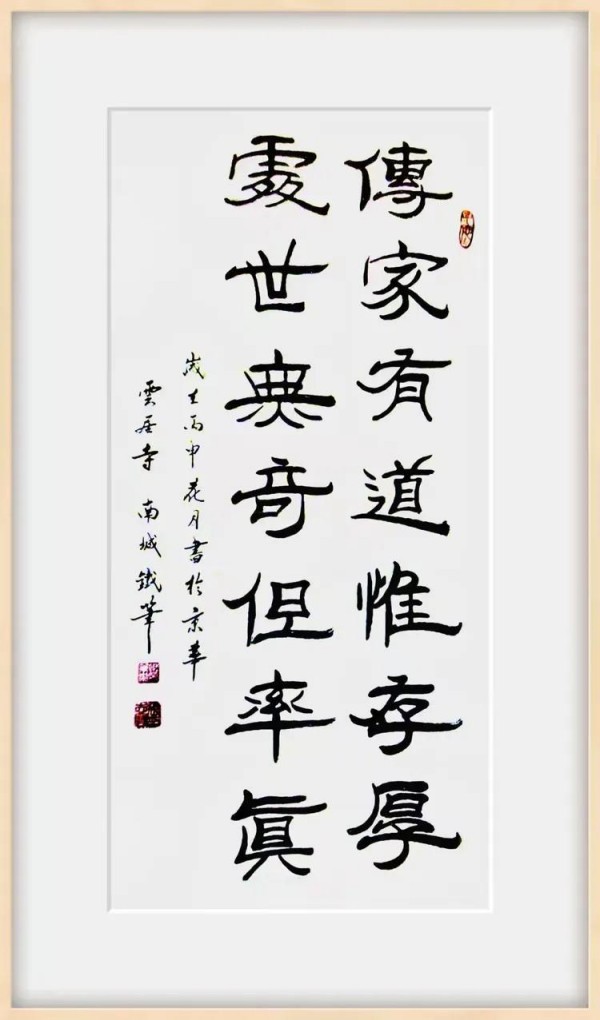 傳家有道惟存厚
處世無奇但率眞
歲在丙申花月書於京華
雲居寺 南城鐵筆